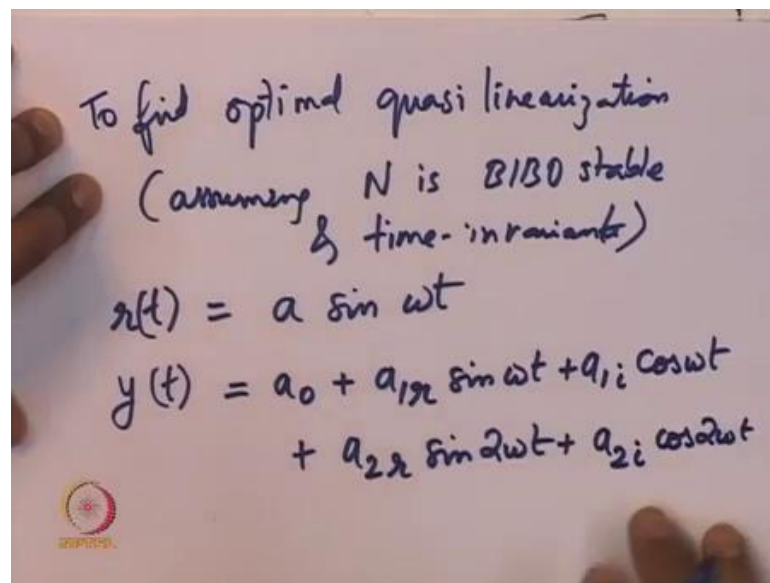 To find optimal quasi linearization
(assuming N is BIBO stable
& time-invariant)
r(t) = a sin ωt
y(t) = a₀ + a₁ᵣ sin ωt + a₁ᵢ cos ωt
+ a₂ᵣ sin 2ωt + a₂ᵢ cos 2ωt
NPTEL